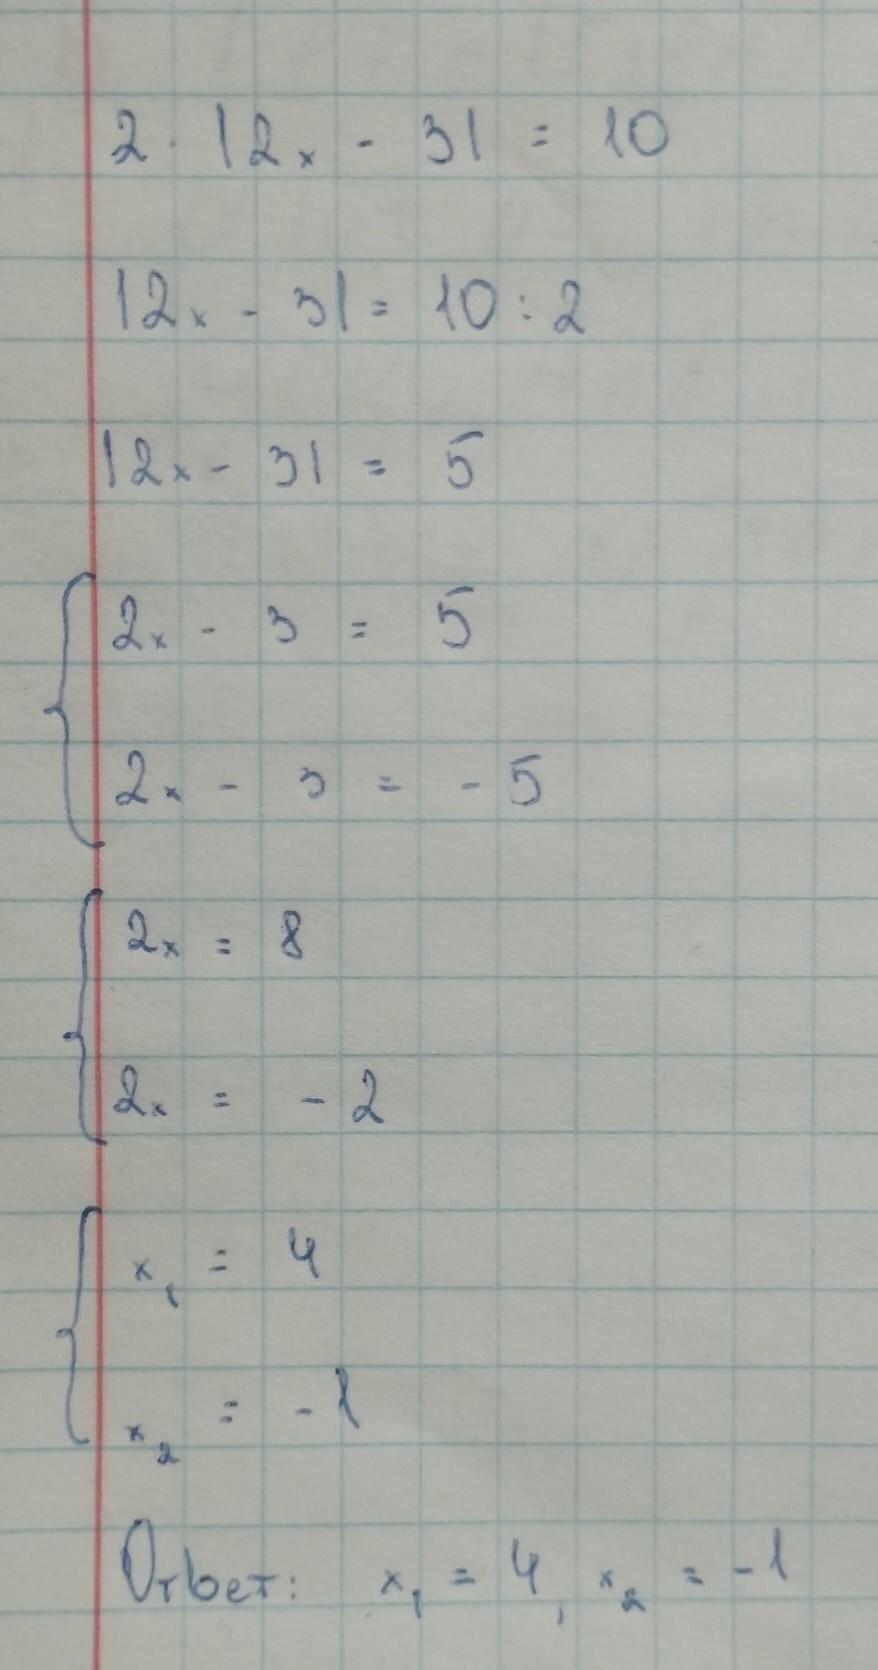 2 · |2x - 3| = 10
|2x - 3| = 10 : 2
|2x - 3| = 5
2x - 3 = 5
2x - 3 = - 5
2x = 8
2x = - 2
x₁ = 4
x₂ = - 1
Ответ: x₁ = 4, x₂ = - 1